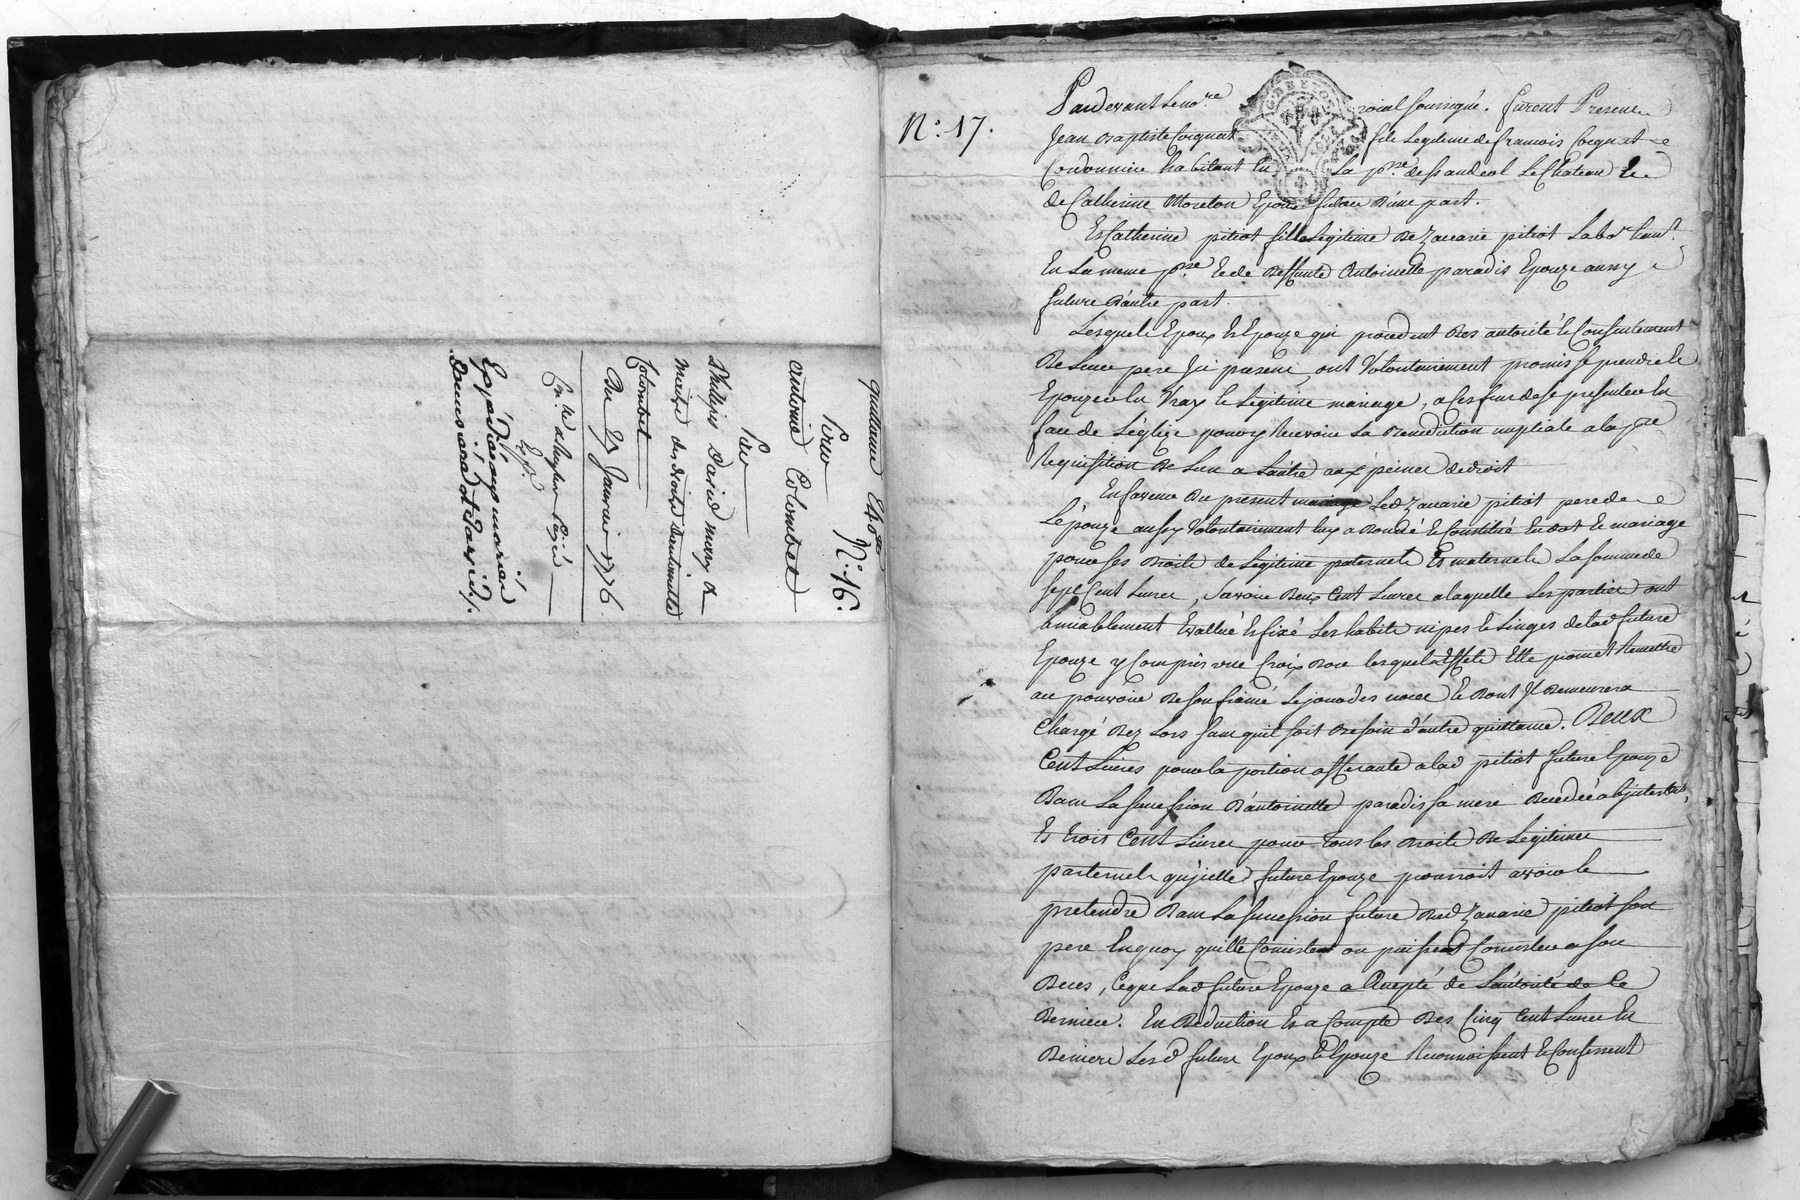 quittance 840#
N.º 16.
Pour
antoine Colombet
Par
Philippe Darius mury &
Marthe des droits Dantoinette
Colombet
Du 25 Janvier 1776
Con.lé
Exp.
Expédié aux mariés
N.º 17.
Pardevant le no.re royal soussigné. furent Presens
Jean Baptiste Coignat fils Legitime de francois Coignat
Cordonnier habitant En La p.sse de st andeol Le Chateau Et
de Catherine Moreton Epoux futur D'une part.
Et Catherine pitiot fille Legitime De Zacarie pitiot Labo.r hauf.
En La meme p.sse Et de Deffunte Antoinette paradis Epouze aussy
future D'autre part.
Lesquels Epoux Et Epouze qui procedent Des autorité Et Consentement
De Leurs pere Jci presens, ont Volontairement promis se prendre Et
Epouzer En Vray Et Legitime mariage, a ces fins de se presenter En
face de L'églize pour y Recevoir La Benediction nuptiale a la p.re
Requisition De L'un a L'autre aux peines de droit
En faveur Du present mariage Led Zacarie pitiot pere de
L'épouze aussy Volontairement luy a Donné Et Constitué En dot Et mariage
pour ses Droits de Legitime paternels Et maternels La somme de
sept Cent Livres, savoir Deux Cent Livres a laquelle Les parties ont
amiablement Evallué Et fixé Les habits nipes Et Linges de lad future
Epouze y Compris une Croix D'or lesquels Effets Elle promet Remettre
au pouvoir De son fiancé Le jour des noces Et Dont Jl Demeurera
Chargé Dez Lors sans quil soit Besoin d'autre quittance. Deux
Cent Livres pour la portion afferante a lad pitiot future Epouze
Dans La succession D'antoinette paradis sa mere Decedée abjntestat,
Et trois Cent Livres pour tous les Droits De Legitimes
paternels qu'jcelle future Epouze pourroit avoir Et
pretendre Dans La succession future Dud Zacarie pitiot son
pere En quoy quils Consistent ou puissent Consister a son
Deces, Ceque Lad future Epouze a accepté de L'autorité de Ce
Dernier. En Deduction Et a Compte Des Cinq Cent Livres En
Deniers Lesd futurs Epoux Et Epouze Reconnoissent Et Confessent